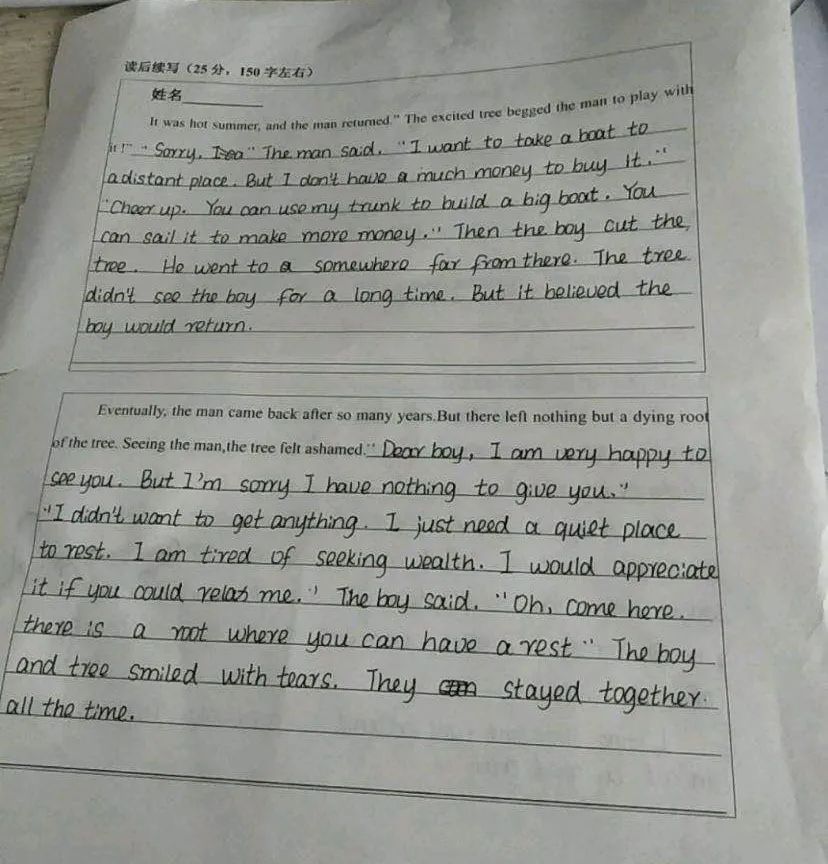 读后续写（25 分，150 字左右）
姓名
It was hot summer, and the man returned." The excited tree begged the man to play with
it!" " Sorry, " The man said. "I want to take a boat to
a distant place. But I don't have a much money to buy it."
"Cheer up. You can use my trunk to build a big boat. You
can sail it to make more money." Then the boy cut the
tree. He went to a somewhere far from there. The tree
didn't see the boy for a long time. But it believed the
boy would return.
Eventually, the man came back after so many years.But there left nothing but a dying root
of the tree. Seeing the man,the tree felt ashamed." Dear boy, I am very happy to
see you. But I'm sorry I have nothing to give you."
"I didn't want to get anything. I just need a quiet place
to rest. I am tired of seeking wealth. I would appreciate
it if you could me." The boy said. "Oh, come here.
there is a root where you can have a rest" The boy
and tree smiled with tears. They stayed together
all the time.